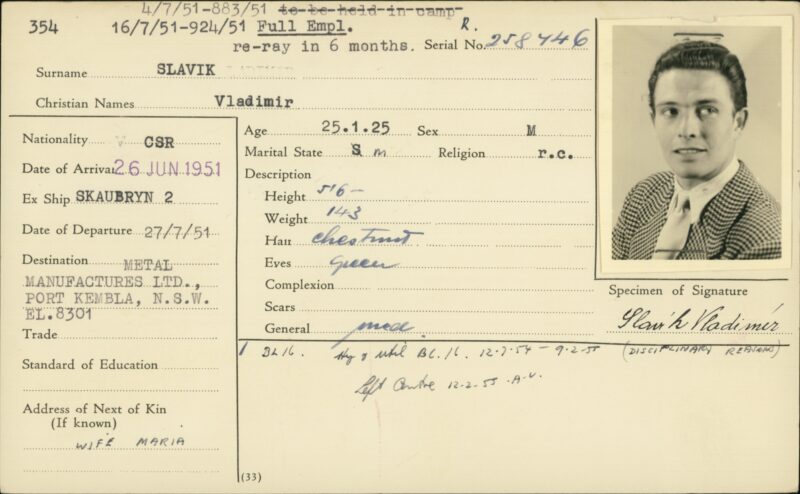 4/7/51-883/51 to be held in camp
354 16/7/51-924/51 Full Empl. R.
re-ray in 6 months. Serial No. 258446
Surname SLAVIK
Christian Names Vladimir
Nationality CSR
Date of Arrival 26 JUN 1951
Ex Ship SKAUBRYN 2
Date of Departure 27/7/51
Destination METAL
MANUFACTURES LTD.,
PORT KEMBLA, N.S.W.
EL.8301
Trade
Standard of Education
Address of Next of Kin
(If known)
WIFE MARIA
Age 25.1.25 Sex M
Marital State S M Religion r.c.
Description
Height 5'6-
Weight 143
Hair chestnut
Eyes green
Complexion
Scars
General med.
Specimen of Signature
Slavik Vladimír
1 BL16. until BL.16. 12-7-54 - 9-2-55 (DISCIPLINARY REASONS)
Left Centre 12-2-55 A.V.
(33)